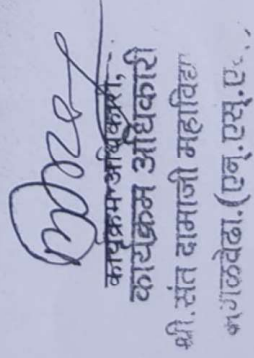 कार्यक्रम अधिकारी,
कार्यक्रम अधिकारी
श्री. संत दामाजी महाविद्या
मंगळवेढा. (एन. एस. ए